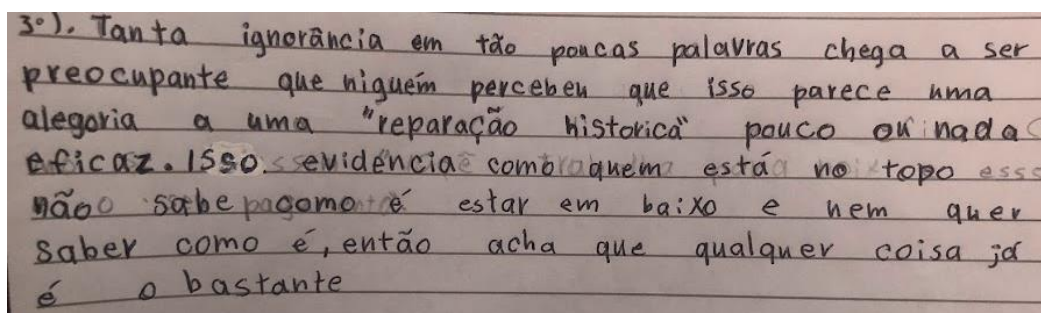 3º). Tanta ignorância em tão poucas palavras chega a ser
preocupante que niguém percebeu que isso parece uma
alegoria a uma "reparação historica" pouco ou nada
eficaz. Isso evidência como quem está no topo
não sabe como é estar em baixo e nem quer
saber como é, então acha que qualquer coisa já
é o bastante